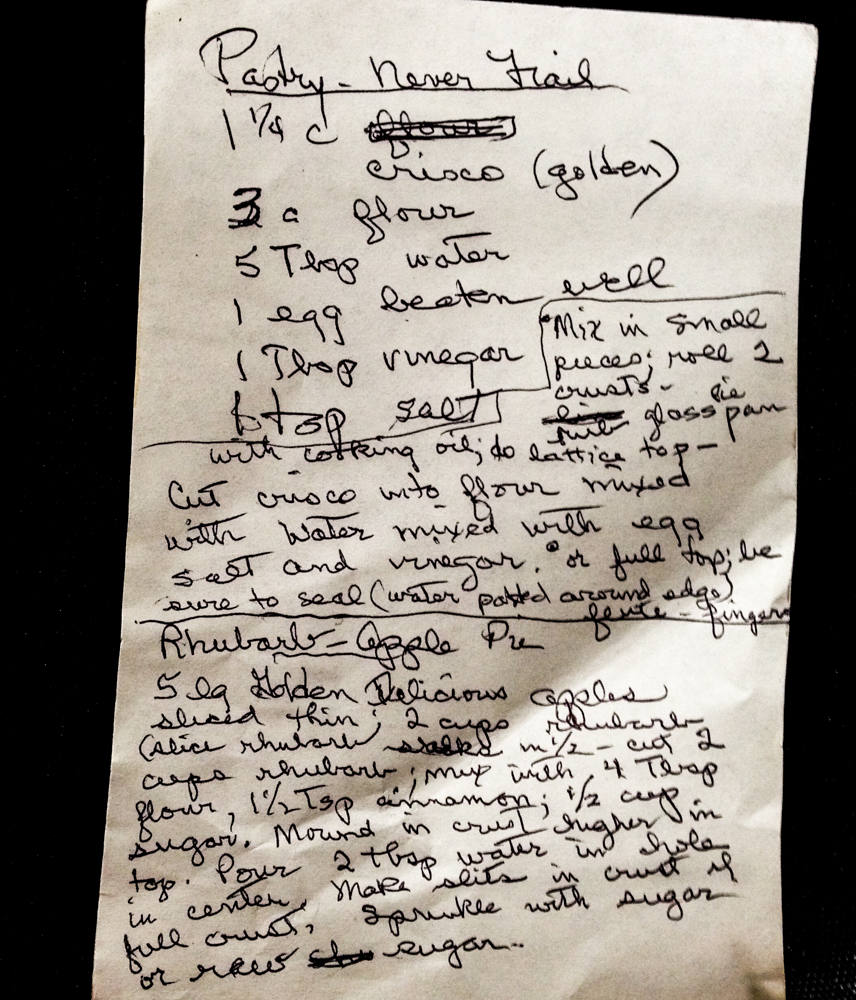 Pastry - Never Fail
1 1/4 c
crisco (golden)
3 c flour
5 Tbsp water
1 egg beaten well
1 Tbsp vinegar
1 tsp salt
Mix in small
pieces; roll 2
crusts -
rub glass pie pan
with cooking oil; do lattice top -
Cut crisco into flour mixed
with Water mixed with egg
salt and vinegar. or full top; be
sure to seal (water patted around edge)
flute - fingers
Rhubarb - Apple Pie
5 lg Golden Delicious apples
sliced thin; 2 cups rhubarb
(slice rhubarb stalks in 1/2 - cut 2
cups rhubarb; mix with 4 Tbsp
flour, 1 1/2 Tsp cinnamon; 1/2 cup
sugar. Mound in crust higher in
top. Pour 2 tbsp water in hole
in center. Make slits in crust if
full crust. Sprinkle with sugar
or raw sugar.